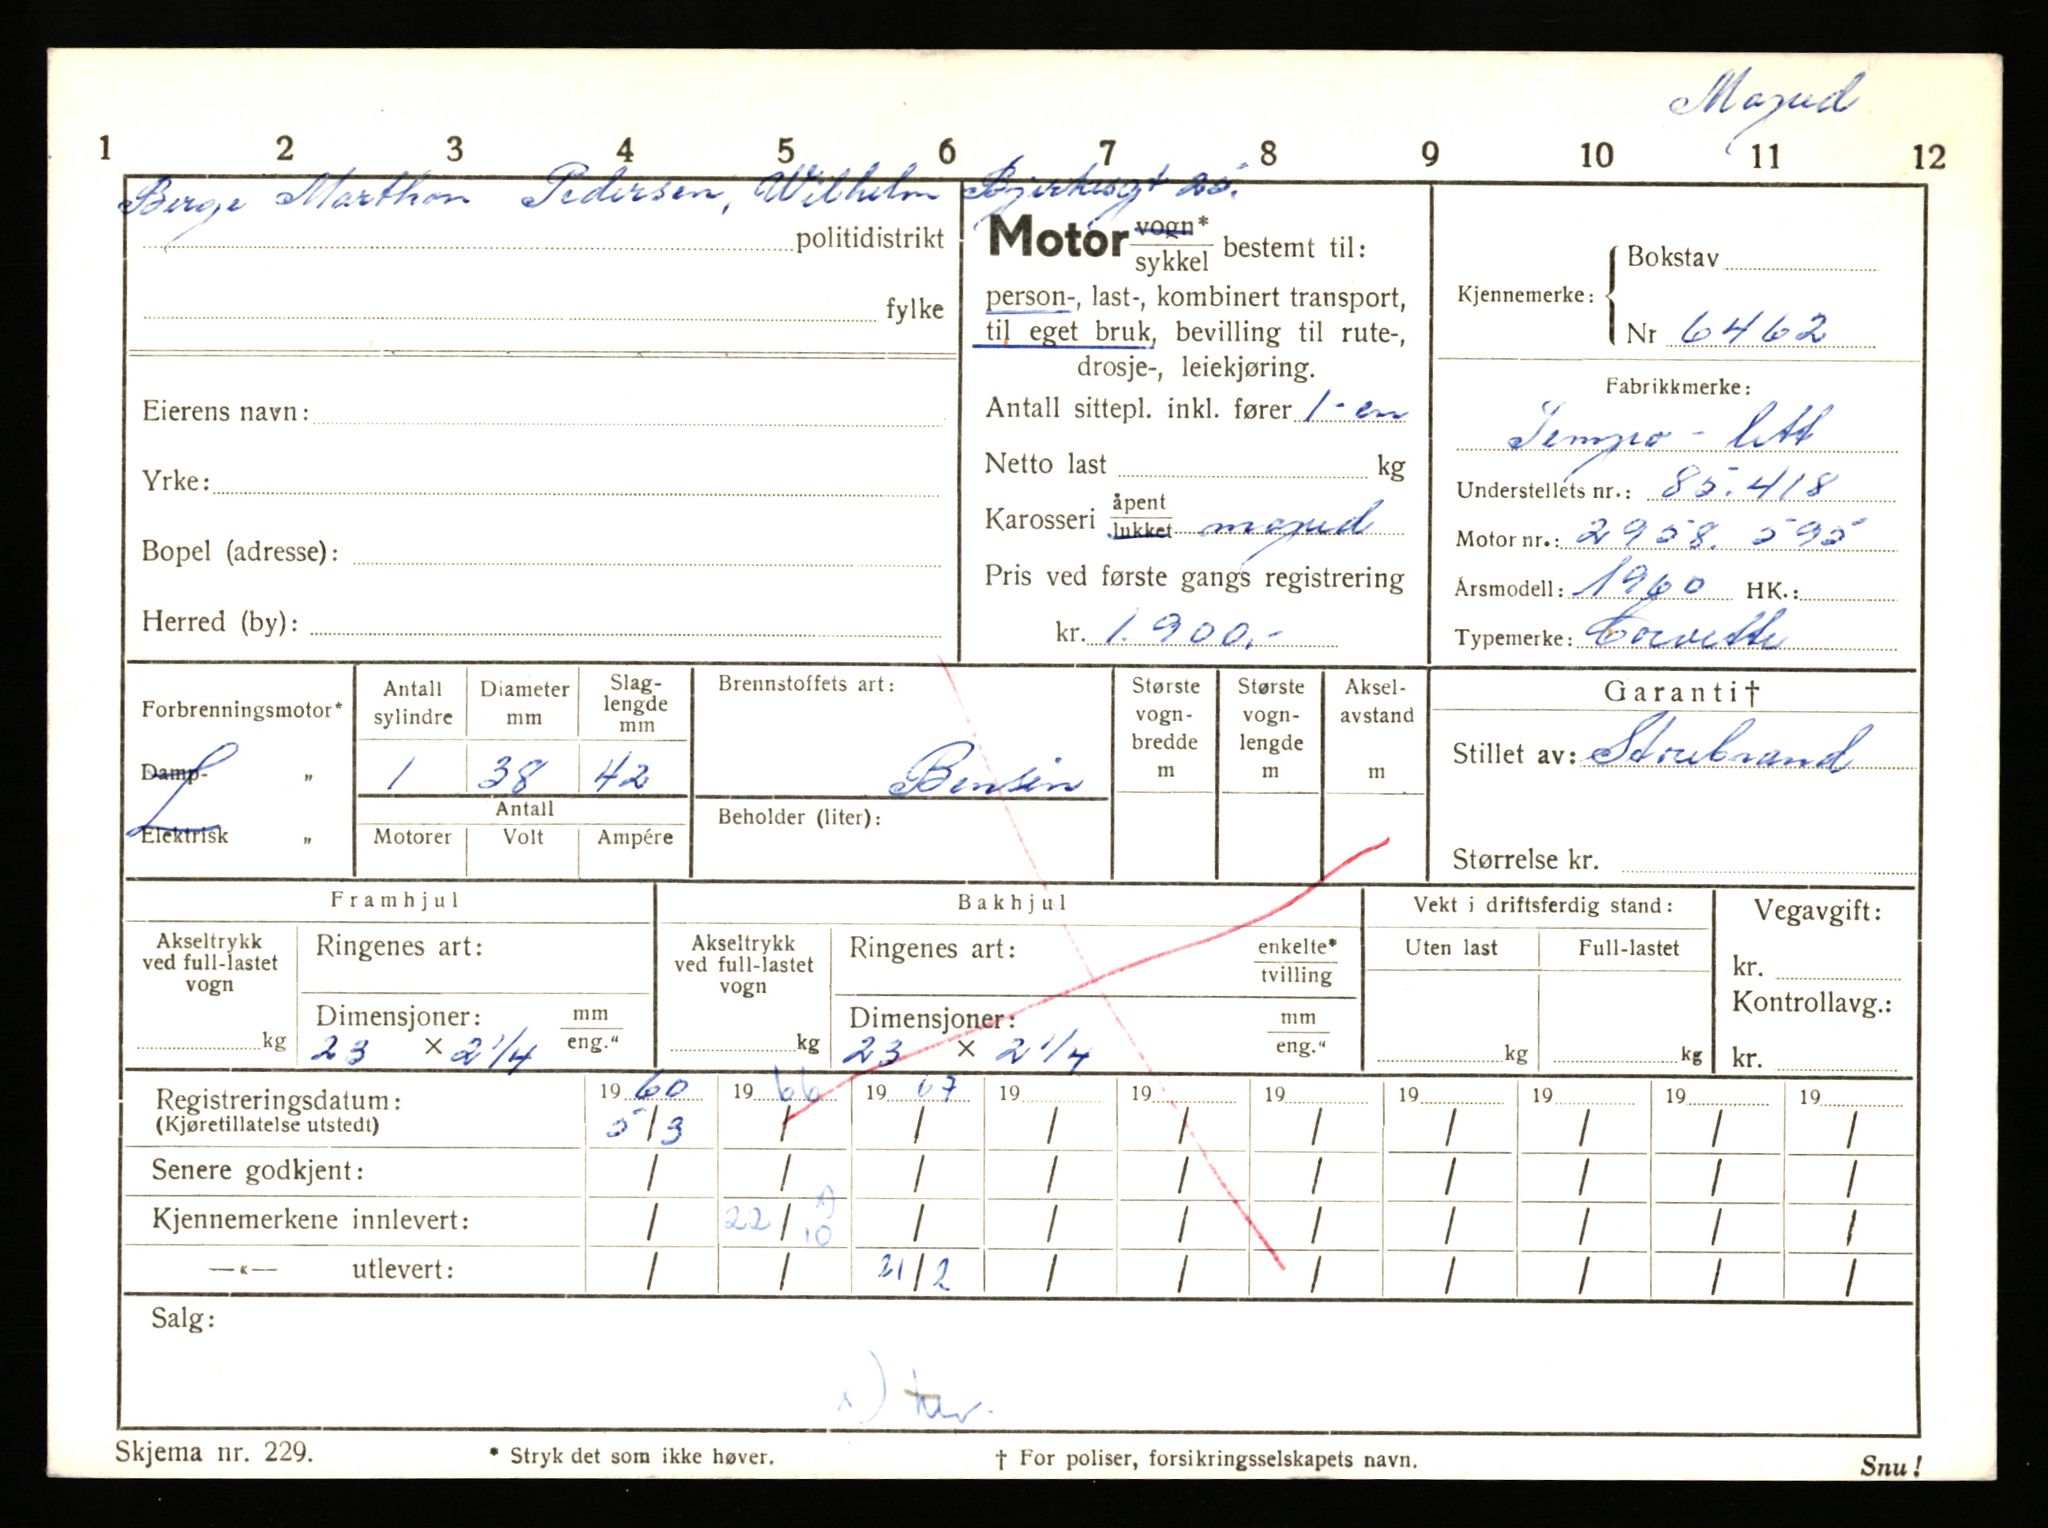 Moped
1 2 3 4 5 6 7 8 9 10 11 12
Berge Marthon Pedersen, Wilhelm Bjerkesgt 25.
politidistrikt
fylke
Eierens navn:
Yrke:
Bopel (adresse):
Herred (by):
Motor vogn* / sykkel bestemt til:
person-, last-, kombinert transport,
til eget bruk, bevilling til rute-,
drosje-, leiekjøring.
Antall sittepl. inkl. fører 1-en
Netto last kg
Karosseri åpent / lukket moped
Pris ved første gangs registrering
kr. 1.900,-
Kjennemerke: Bokstav
Nr 6462
Fabrikkmerke:
Tempo - lett
Understellets nr.: 85.418
Motor nr.: 2958.595
Årsmodell: 1960 HK.:
Typemerke: Corvette
Forbrenningsmotor*
Damp- „
Elektrisk „
Antall sylindre Diameter mm Slaglengde mm
1 38 42
Antall
Motorer Volt Ampére
Brennstoffets art:
Bensin
Beholder (liter):
Største vognbredde m
Største vognlengde m
Akselavstand m
Garanti†
Stillet av: Storebrand
Størrelse kr.
Framhjul
Akseltrykk ved full-lastet vogn kg
Ringenes art:
Dimensjoner: mm / eng."
23 × 2 1/4
Bakhjul
Akseltrykk ved full-lastet vogn kg
Ringenes art: enkelte* / tvilling
Dimensjoner: mm / eng."
23 × 2 1/4
Vekt i driftsferdig stand:
Uten last Full-lastet
kg kg
Vegavgift:
kr.
Kontrollavg.:
kr.
Registreringsdatum: 1960 1966 1967 19 19 19 19 19 19 19
(Kjøretillatelse utstedt) 5/3 / / / / / / / / /
Senere godkjent: / / / / / / / / / /
Kjennemerkene innlevert: / 22/10 x) / / / / / / / /
—«— utlevert: / / 21/2 / / / / / / /
Salg:
x)
Skjema nr. 229.
* Stryk det som ikke høver.
† For poliser, forsikringsselskapets navn.
Snu!